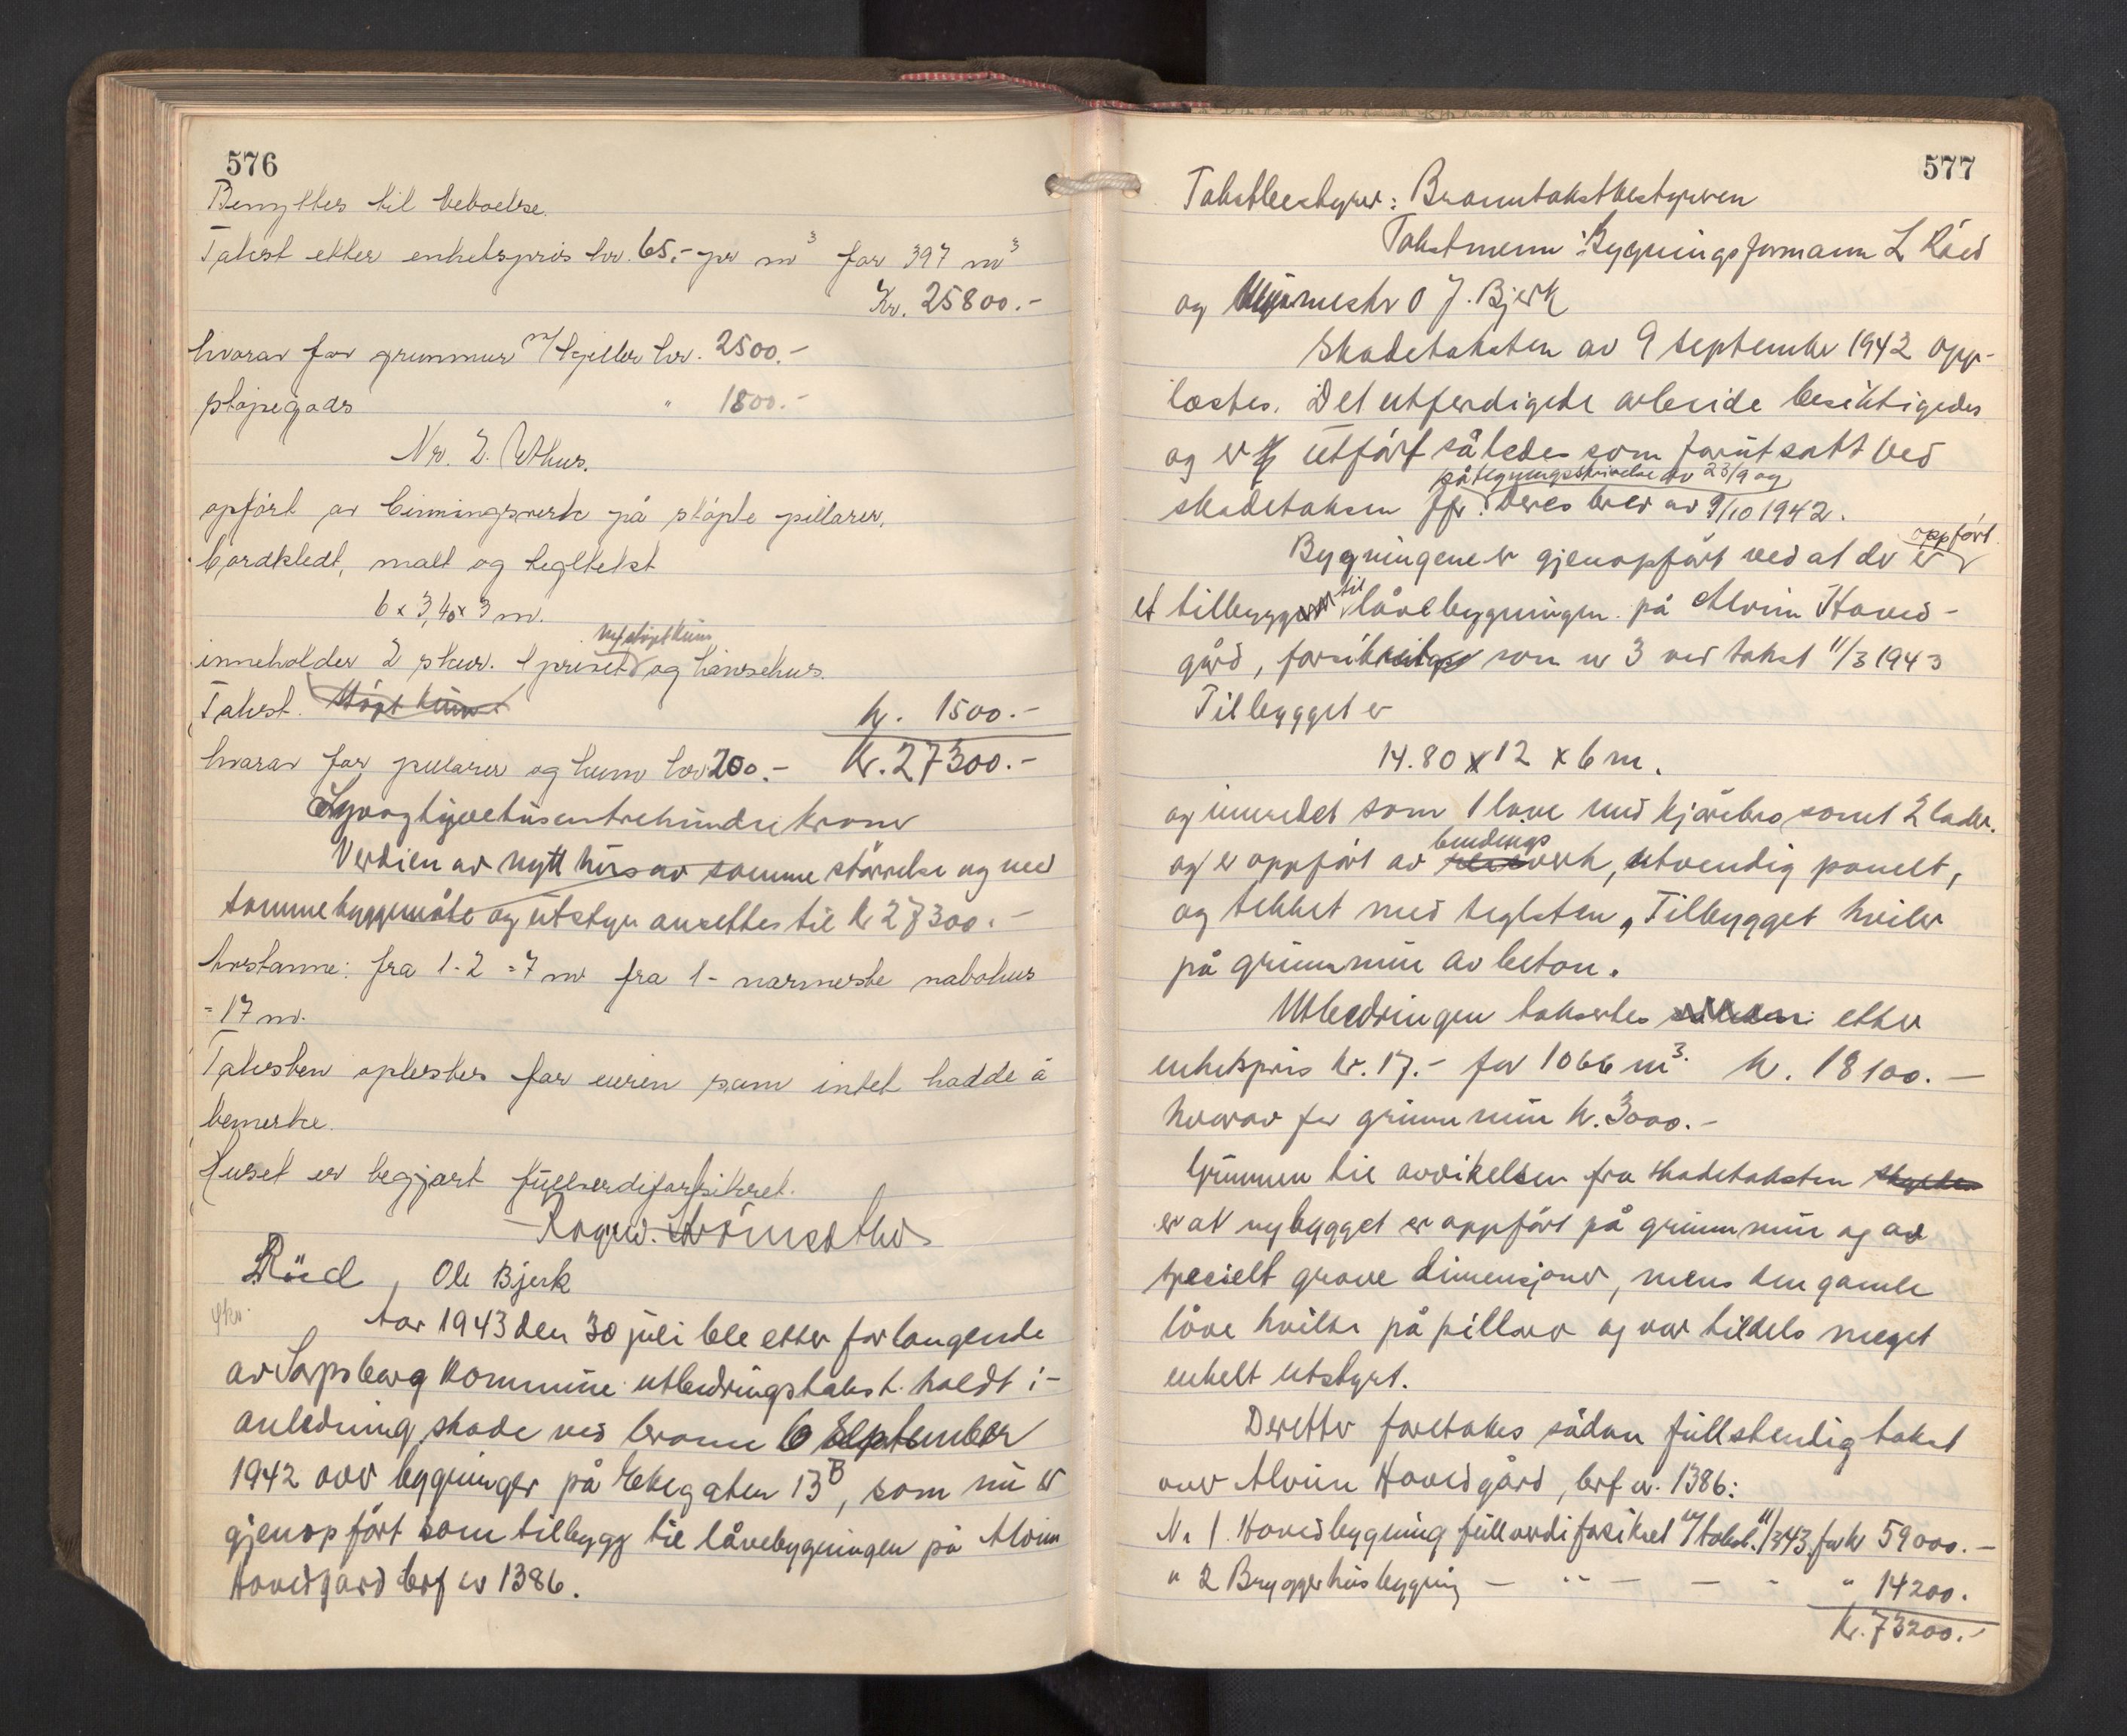 576
Benyttes til beboelse.
Takst etter enhetspris kr. 65.- pr m³ for 397 m³
Kr. 25800.-
hvorav for grunnmur m/kjeller kr. 2500.-
støpegods " 1800.-
Nr. 2. Uthus.
opført av binningsverk på støpte pillarer,
bordkledt, malt og tegltekt
6 x 3,40 x 3 m.
inneholder 2 skur. 1 privet m/støpt kum og hønsehus.
Takst. støpt kum kr. 1500.-
hvorav for pillarer og kum kr 200.- Kr. 27300.-
Syvogtyvetusentrehundre kroner
Verdien av nytt hus av samme størrelse og med
samme byggemåte og utstyr ansettes til kr 27300.-
Avstanne: fra 1-2 = 7 m fra 1 - nærmeste nabohus
= 17 m.
Taksten oplestes for eieren som intet hadde å
bemerke.
Huset er begjært fullverdiforsikret.
Ragnv. Strömsæther
L Röed, Ole Bjerk
Aar 1943 den 30 juli ble etter forlangende
av Sarpsborg Kommune utbedringstakst holdt i
anledning skade ved brann 6 september
1942 over bygninger på Ekegaten 13B, som nu er
gjenopført som tilbygg til låvebygningen på Alvim
Hovedgård brf nr 1386.
577
Takstbestyrer: Branntakstbestyreren
Takstmenn: Bygningsformann L Röed
og murmester O J. Bjerk
Skadetaksten av 9 september 1942 opp-
lestes. Det utferdigede arbeide besiktigedes
og er utført således som forutsatt ved
påtegningsskrivelse av 23/9 og
skadetaksen jfr. deres brev av 9/10 1942.
Bygningene er gjenopført ved at der er oppført
et tilbygg til låvebygningen på Alvim Hoved-
gård, forsikret som nr 3 ved takst 11/3 1943
Tilbygget er
14.80 x 12 x 6 m.
og innredet som 1 låve med kjørebro samt 2 lader.
og er oppført av bendingsverk, utvendig panelt,
og tekket med teglsten, Tilbygget hviler
på grunnmur av beton.
Utbedringen takseres etter
enhetspris kr. 17.- for 1066 m³. kr. 18100.-
hvorav for grunnmur kr. 3000.-
Grunnen til avvikelsen fra skadetaksten skyldes
er at nybygget er oppført på grunnmur og av
specielt grove dimensjoner, mens den gamle
låve hvilte på pillarer og var tildels meget
enkelt utstyrt.
Deretter foretokes sådan fullstendig takst
over Alvim Hovedgård, brf nr. 1386:
Nr 1. Hovedbygning fullverdiforsikret v/takst. 11/3 43. for kr 59000.-
" 2 Bryggerhusbygning — " — — " " 14200.
Kr. 73200.-